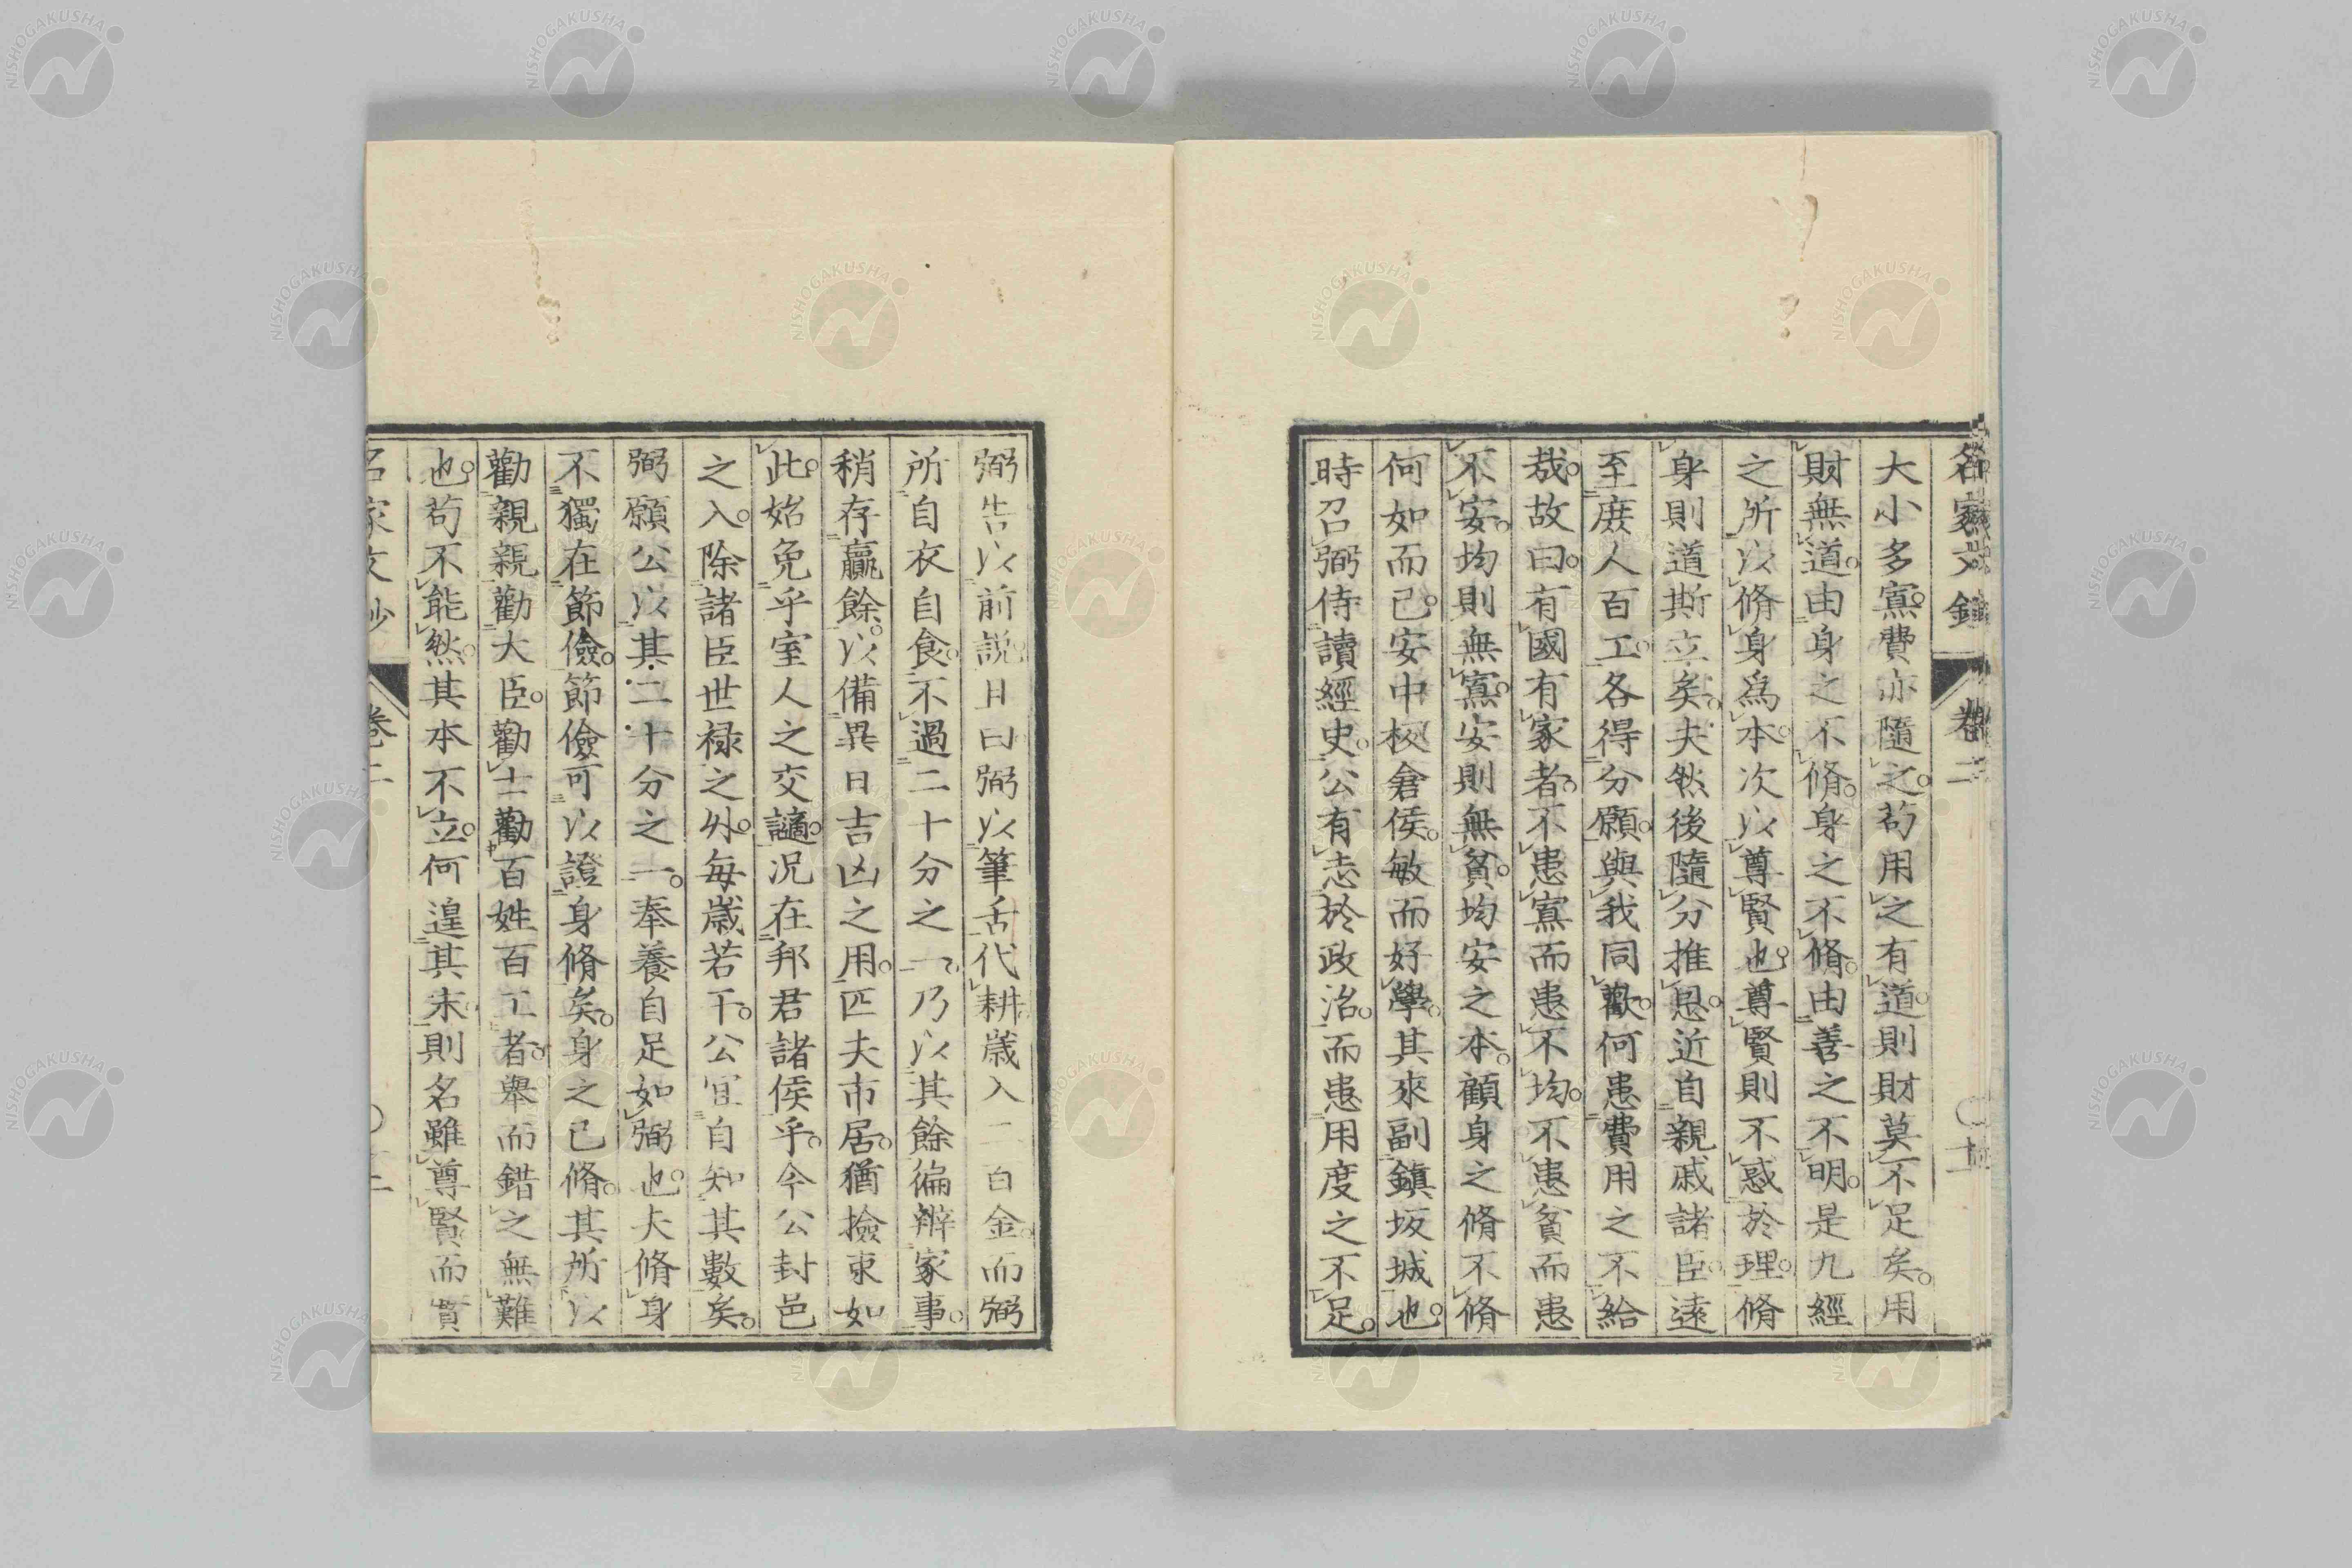 名家文鈔 卷二
大小多寡費亦隨之苟用之有道則財莫不足矣用
財無道由身之不脩身之不脩由善之不明是九經
之所以脩身爲本次以尊賢也尊賢則不惑於理脩
身則道斯立矣夫然後隨分推恩近自親戚諸臣遠
至庶人百工各得分願與我同歡何患費用之不給
哉故曰有國有家者不患寡而患不均不患貧而患
不安均則無寡安則無貧均安之本顧身之脩不脩
何如而已安中板倉侯敏而好學其來副鎮坂城也
時召弼侍讀經史公有志於政治而患用度之不足
弼告以前説且曰弼以筆舌代耕歳入二百金而弼
所自衣自食不過二十分之一乃以其餘徧辨家事
稍存贏餘以備異日吉凶之用匹夫市居猶撿束如
此始免乎室人之交讁況在邦君諸侯乎今公封邑
之入除諸臣世禄之外毎歳若干公宜自知其數矣
弼願公以其二十分之一奉養自足如弼也夫脩身
不獨在節儉節儉可以證身脩矣身之已脩其所以
勸親親勸大臣勸士勸百姓百工者舉而錯之無難
也苟不能然其本不立何遑其末則名雖尊賢而賓
名家文鈔 卷二
NISHOGAKUSHA